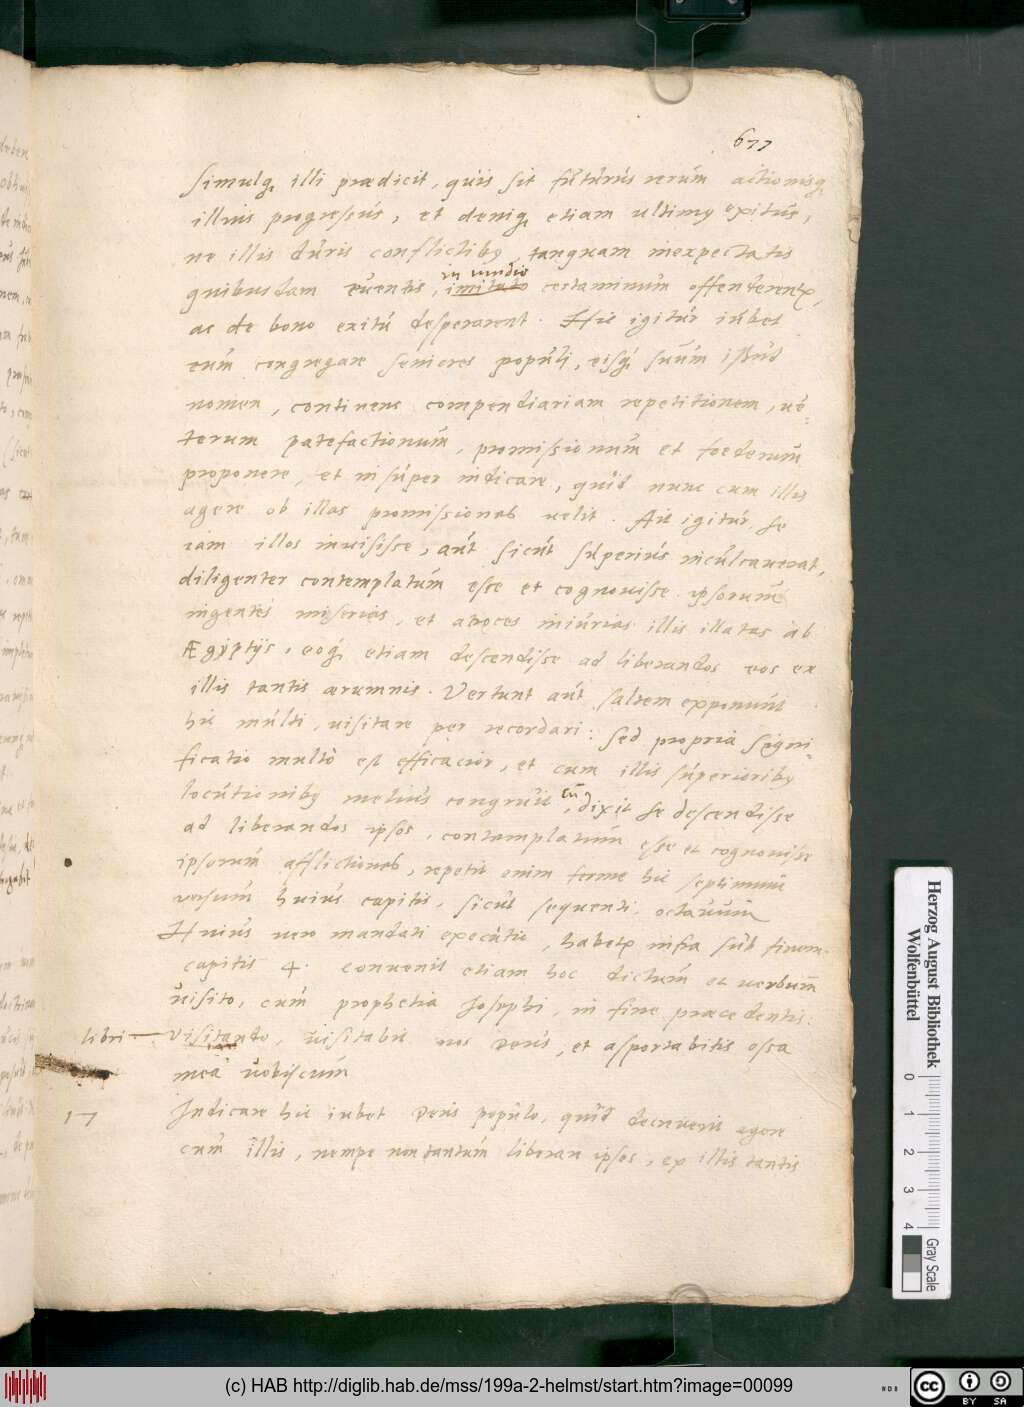 677
simulq, illi prædicit, quis sit futurus rerum actionisq,
illius progressus, et deniq, etiam ultimꝯ exitus,
ne illis duris conflictibꝯ, tanquam inexpectatis
in medio
quibusdam euentis, certaminum offenderent,
ac de bono exitu desperarent. Hic igitur iubet
eum congregare seniores populi, eisq, suum istud
nomen, continens compendiariam repetitionem, ue=
terum patefactionum, promissionum et foederum
proponere, et insuper indicare, quid nunc cum illis
agere ob illas promissiones uelit. Ait igitur, se
iam illos inuisisse, aut sicut superius inculcauerat,
diligenter contemplatum esse et cognouisse ipsorum
ingentes miserias, et atroces iniurias illis illatas ab
Ægyptijs, eoq, etiam descendisse ad liberandos eos ex
illis tantis ærumnis. Vertunt aut saltem exponunt
hic multi, uisitare per recordari: sed propria signi=
ficatio multo est efficacior, et cum illis superioribꝯ
locutionibꝯ melius congruit, cu dixit se descendisse
ad liberandos ipsos, contamplatum esse et cognouisse
ipsorum afflictiones, repetit enim ferme hic septimum
versum huius capitis, sicut sequenti, octauum
Huius uero mandati executio, habetꝛ infra sub finem
capitis 4. conuenit etiam hoc dictum et verbum
uisito, cum prophetia Josephi, in fine præcedentis
libri visitando, uisitabit uos Deus, et asportabitis ossa
mea uobiscum
17 Indicare hic iubet Deus populo, quid decreuerit agere
cum illis, nempe non tantum liberare ipsos, ex illis tantis
Herzog August Bibliothek
Wolfenbüttel
0 1 2 3 4
Gray Scale
(c) HAB http://diglib.hab.de/mss/199a-2-helmst/start.htm?image=00099
cc BY SA